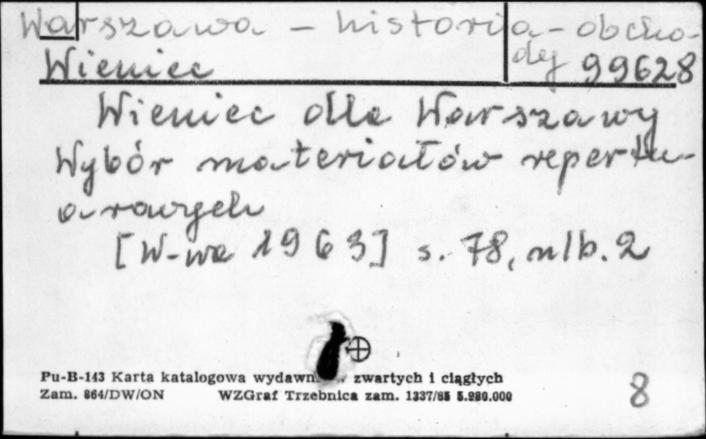 Warszawa - historia - obcho-
dy 99628
Wieniec
Wieniec dla Warszawy
Wybór materiałów repertu-
arowych
[W-wa 1963] s. 78, nlb. 2
Pu-B-143 Karta katalogowa zwartych i ciągłych
Zam. 864/DW/ON WZGraf Trzebnica zam. 1337/85 5.980.000
8